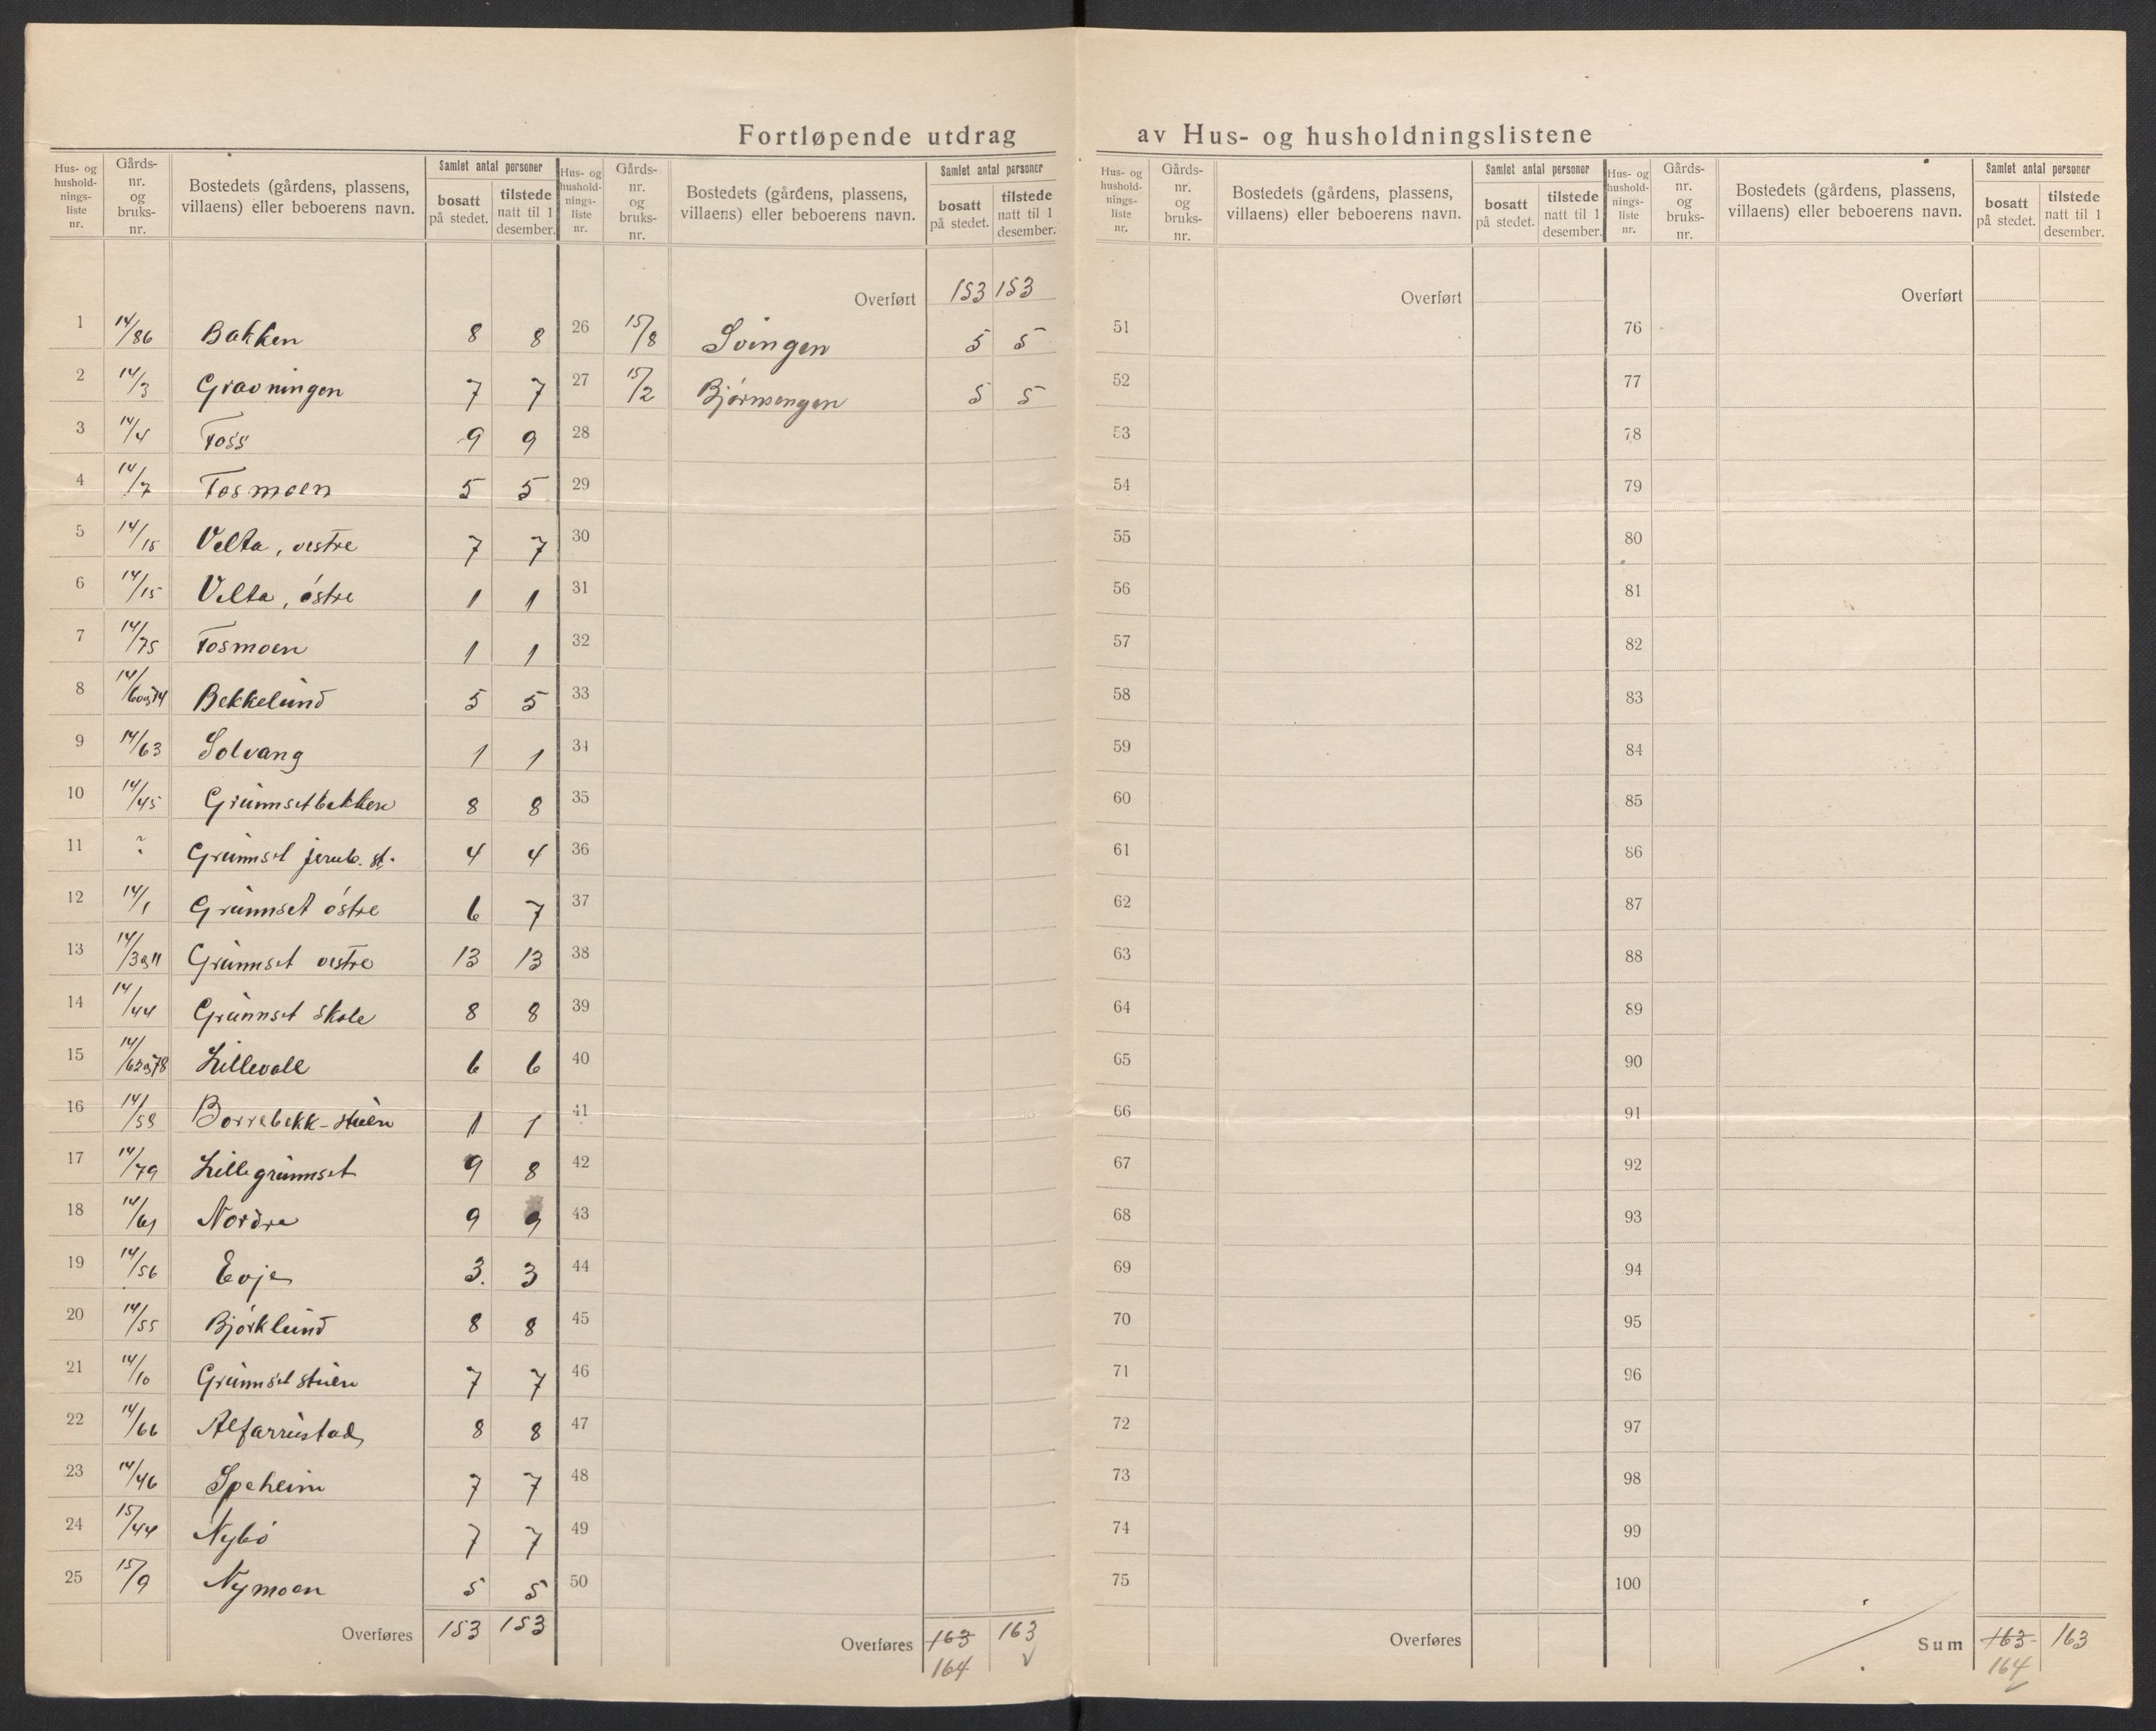 Fortløpende utdrag av Hus- og husholdningslistene
Hus- og hushold- nings- liste nr. | Gårds- nr. og bruks- nr. | Bostedets (gårdens, plassens, villaens) eller beboerens navn. | Samlet antal personer | bosatt på stedet. | tilstede natt til 1 desember.
1 14/86 Bakken 8 8
2 14/3 Gravningen 7 7
3 14/4 Foss 9 9
4 14/7 Fosmoen 5 5
5 14/15 Velta, vestre 7 7
6 14/15 Velta, østre 1 1
7 14/75 Fosmoen 1 1
8 14/60og74 Bekkelund 5 5
9 14/63 Solvang 1 1
10 14/45 Grunnsetbakken 8 8
11 Grunnset jernb. st. 4 4
12 14/1 Grunnset østre 6 7
13 14/3og11 Grunnset vestre 13 13
14 14/44 Grunnset skole 8 8
15 14/62og78 Lillevoll 6 6
16 14/58 Borrebekk-stuen 1 1
17 14/79 Lillegrunnset 9 8
18 14/61 Nordre 9 9
19 14/56 Evje 3. 3
20 14/55 Bjørklund 8 8
21 14/10 Grunnsetstuen 7 7
22 14/66 Alfarrustad 8 8
23 14/46 Speheim 7 7
24 15/44 Nybø 7 7
25 15/9 Nymoen 5 5
Overføres 153 153
Hus- og hushold- nings- liste nr. | Gårds- nr. og bruks- nr. | Bostedets (gårdens, plassens, villaens) eller beboerens navn. | Samlet antal personer | bosatt på stedet. | tilstede natt til 1 desember.
Overført 153 153
26 15/8 Svingen 5 5
27 15/2 Bjørnsengen 5 5
28
29
30
31
32
33
34
35
36
37
38
39
40
41
42
43
44
45
46
47
48
49
50
Overføres 163 163
164
Hus- og hushold- nings- liste nr. | Gårds- nr. og bruks- nr. | Bostedets (gårdens, plassens, villaens) eller beboerens navn. | Samlet antal personer | bosatt på stedet. | tilstede natt til 1 desember.
Overført
51
52
53
54
55
56
57
58
59
60
61
62
63
64
65
66
67
68
69
70
71
72
73
74
75
Overføres
Hus- og hushold- nings- liste nr. | Gårds- nr. og bruks- nr. | Bostedets (gårdens, plassens, villaens) eller beboerens navn. | Samlet antal personer | bosatt på stedet. | tilstede natt til 1 desember.
Overført
76
77
78
79
80
81
82
83
84
85
86
87
88
89
90
91
92
93
94
95
96
97
98
99
100
Sum 163 163
164